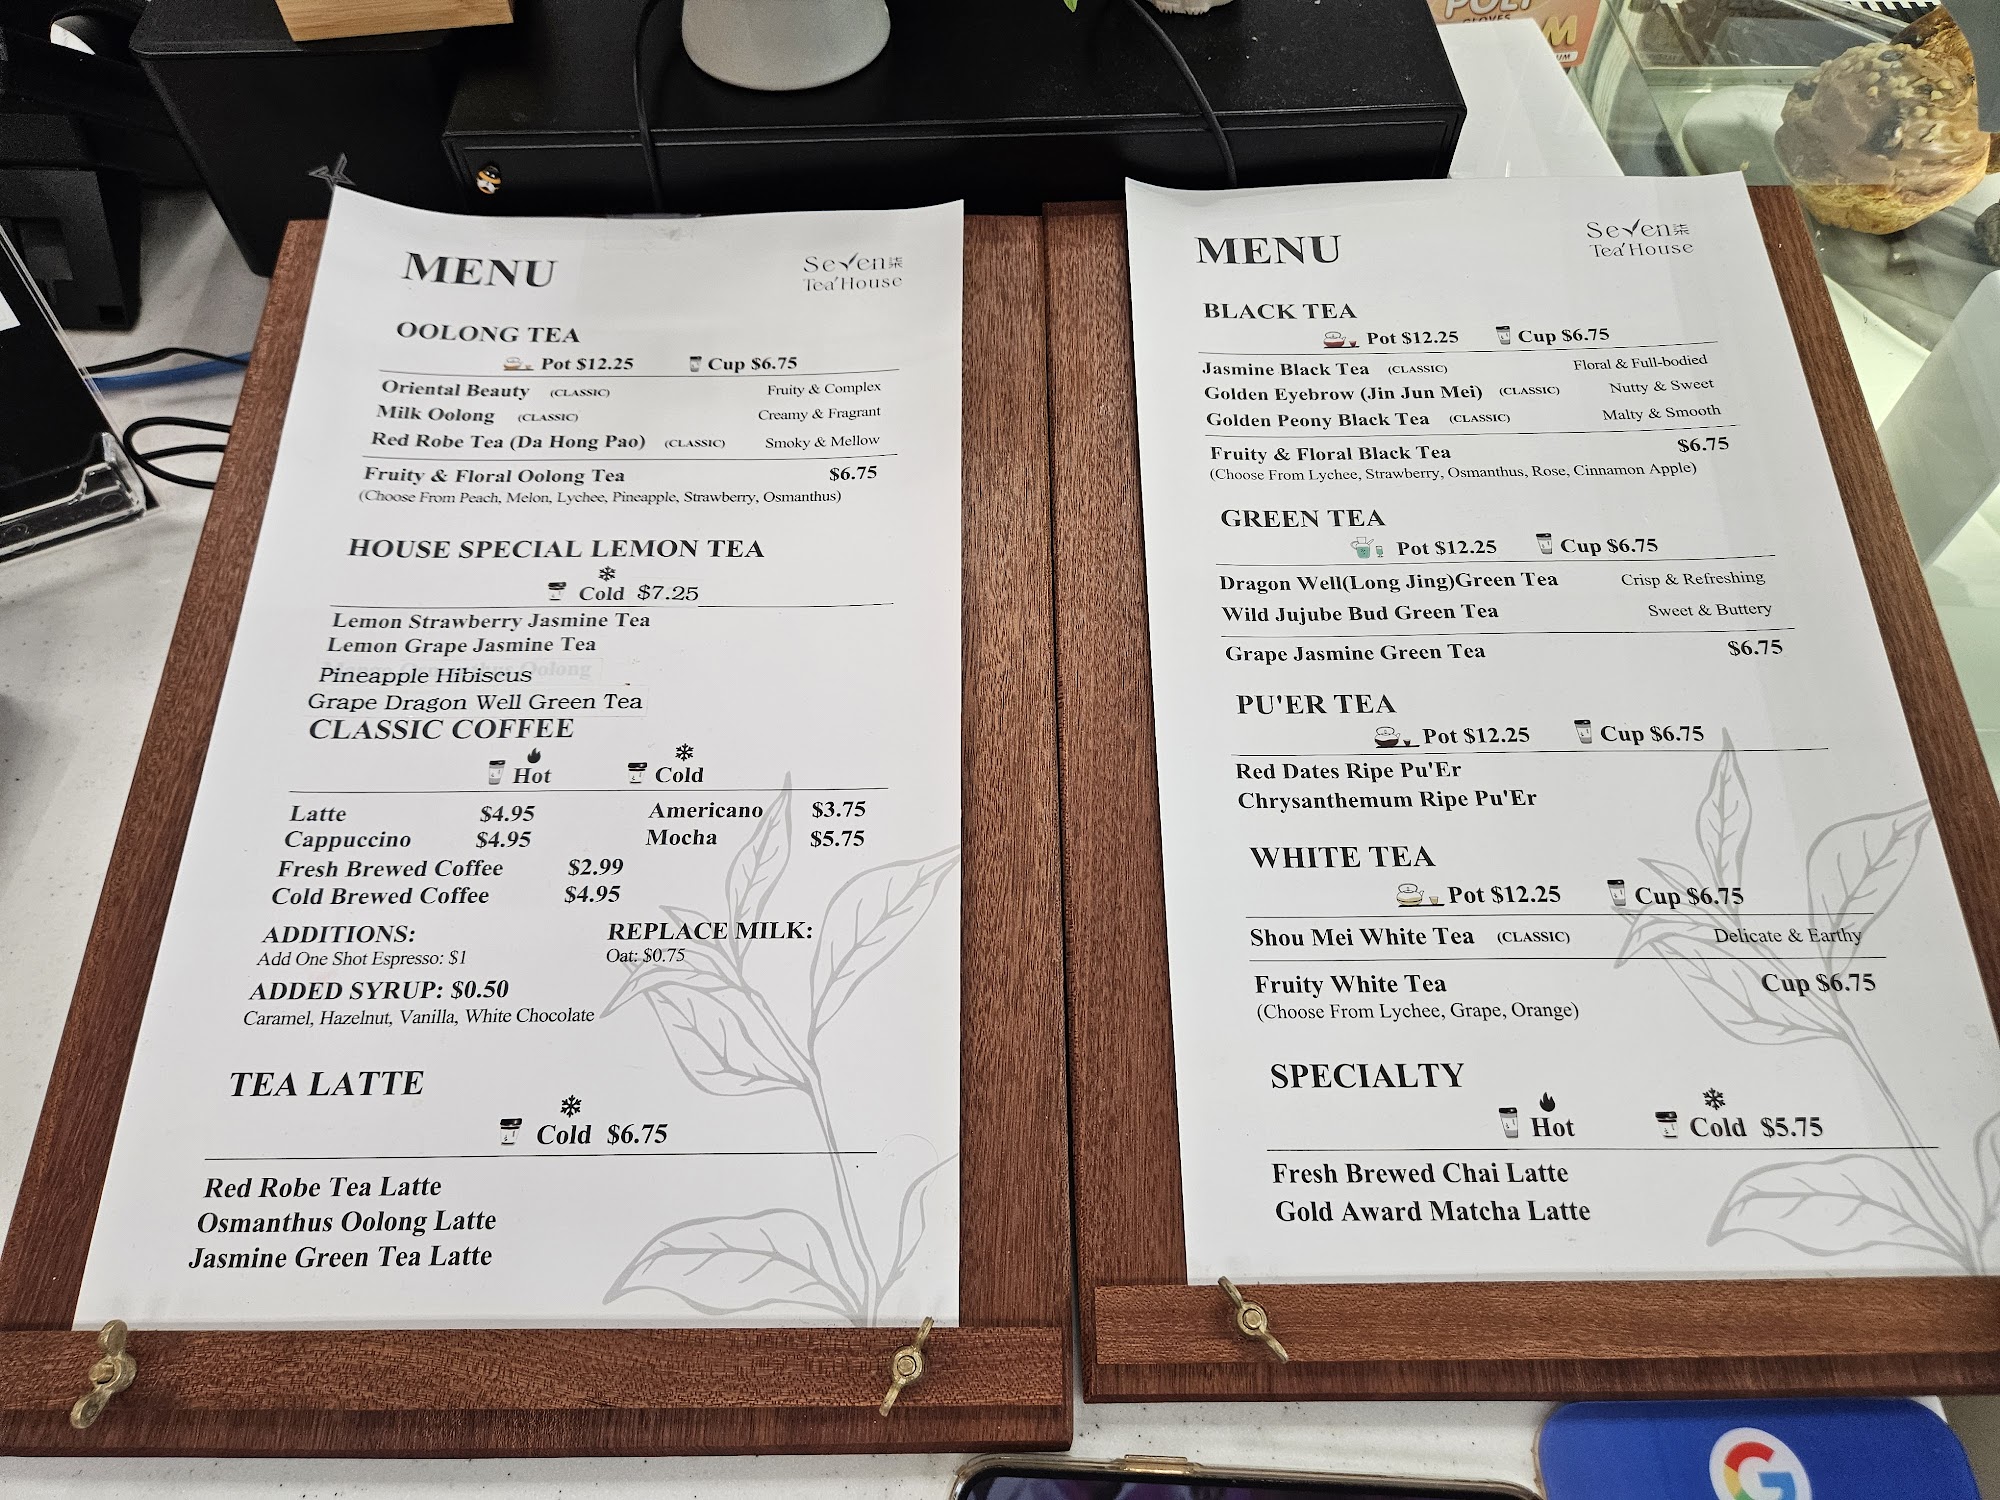 MENU
Seven柒
Tea'House
OOLONG TEA
Pot $12.25 Cup $6.75
Oriental Beauty (CLASSIC) Fruity & Complex
Milk Oolong (CLASSIC) Creamy & Fragrant
Red Robe Tea (Da Hong Pao) (CLASSIC) Smoky & Mellow
Fruity & Floral Oolong Tea $6.75
(Choose From Peach, Melon, Lychee, Pineapple, Strawberry, Osmanthus)
HOUSE SPECIAL LEMON TEA
Cold $7.25
Lemon Strawberry Jasmine Tea
Lemon Grape Jasmine Tea
Pineapple Hibiscus
Grape Dragon Well Green Tea
CLASSIC COFFEE
Hot Cold
Latte $4.95 Americano $3.75
Cappuccino $4.95 Mocha $5.75
Fresh Brewed Coffee $2.99
Cold Brewed Coffee $4.95
ADDITIONS: REPLACE MILK:
Add One Shot Espresso: $1 Oat: $0.75
ADDED SYRUP: $0.50
Caramel, Hazelnut, Vanilla, White Chocolate
TEA LATTE
Cold $6.75
Red Robe Tea Latte
Osmanthus Oolong Latte
Jasmine Green Tea Latte
MENU
Seven柒
Tea'House
BLACK TEA
Pot $12.25 Cup $6.75
Jasmine Black Tea (CLASSIC) Floral & Full-bodied
Golden Eyebrow (Jin Jun Mei) (CLASSIC) Nutty & Sweet
Golden Peony Black Tea (CLASSIC) Malty & Smooth
Fruity & Floral Black Tea $6.75
(Choose From Lychee, Strawberry, Osmanthus, Rose, Cinnamon Apple)
GREEN TEA
Pot $12.25 Cup $6.75
Dragon Well(Long Jing)Green Tea Crisp & Refreshing
Wild Jujube Bud Green Tea Sweet & Buttery
Grape Jasmine Green Tea $6.75
PU'ER TEA
Pot $12.25 Cup $6.75
Red Dates Ripe Pu'Er
Chrysanthemum Ripe Pu'Er
WHITE TEA
Pot $12.25 Cup $6.75
Shou Mei White Tea (CLASSIC) Delicate & Earthy
Fruity White Tea Cup $6.75
(Choose From Lychee, Grape, Orange)
SPECIALTY
Hot Cold $5.75
Fresh Brewed Chai Latte
Gold Award Matcha Latte
POLY
GLOVES
G